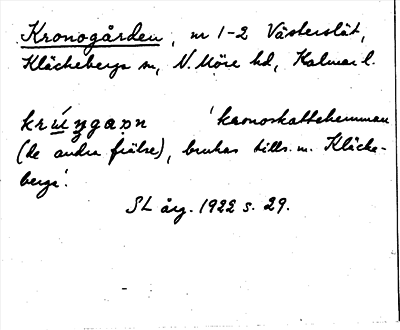 Kronogården, nr 1-2 Västerslät,
Kläckeberga sn, N. Möre hd, Kalmar l.
krúngaɒn 'kronoskattehemman
(de andra frälse), brukas tills. m. Kläcke-
berga'.
SL årg. 1922 s. 29.